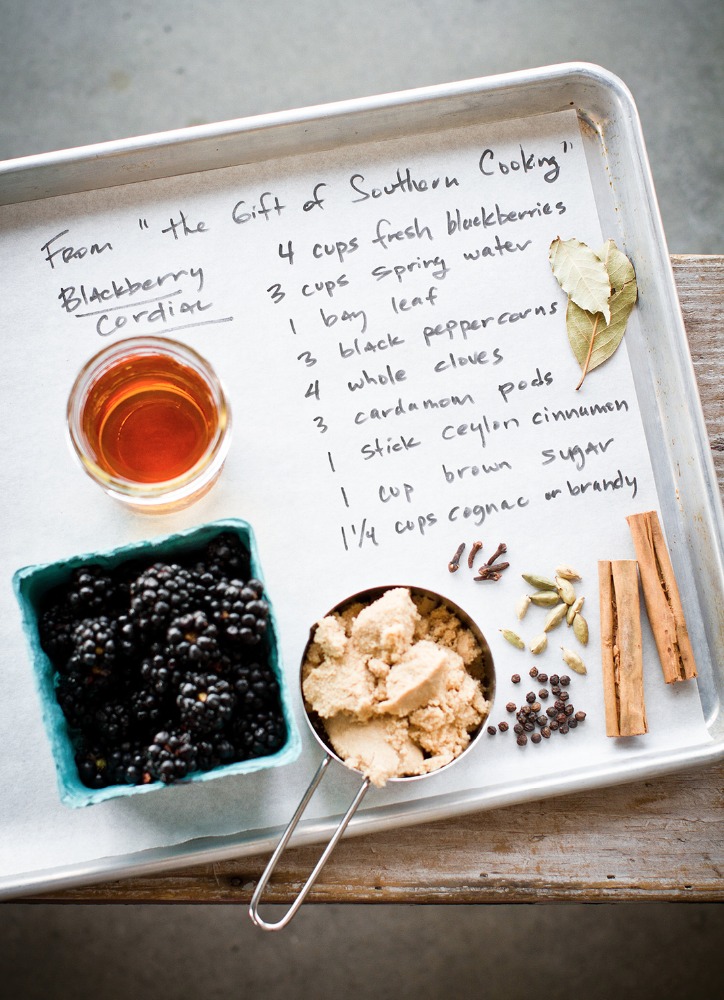 From "the Gift of Southern Cooking"
Blackberry
Cordial
4 cups fresh blackberries
3 cups spring water
1 bay leaf
3 black peppercorns
4 whole cloves
3 cardamom pods
1 stick ceylon cinnamon
1 cup brown sugar
1 1/4 cups cognac or brandy